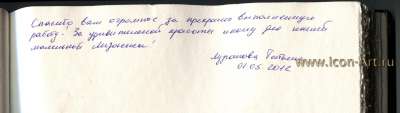 Спасибо вам огромное за прекрасно выполненную
работу. За удивительной красоты икону для нашей
маленькой
Татьяна
01.05.2012
www.Icon-Art.ru